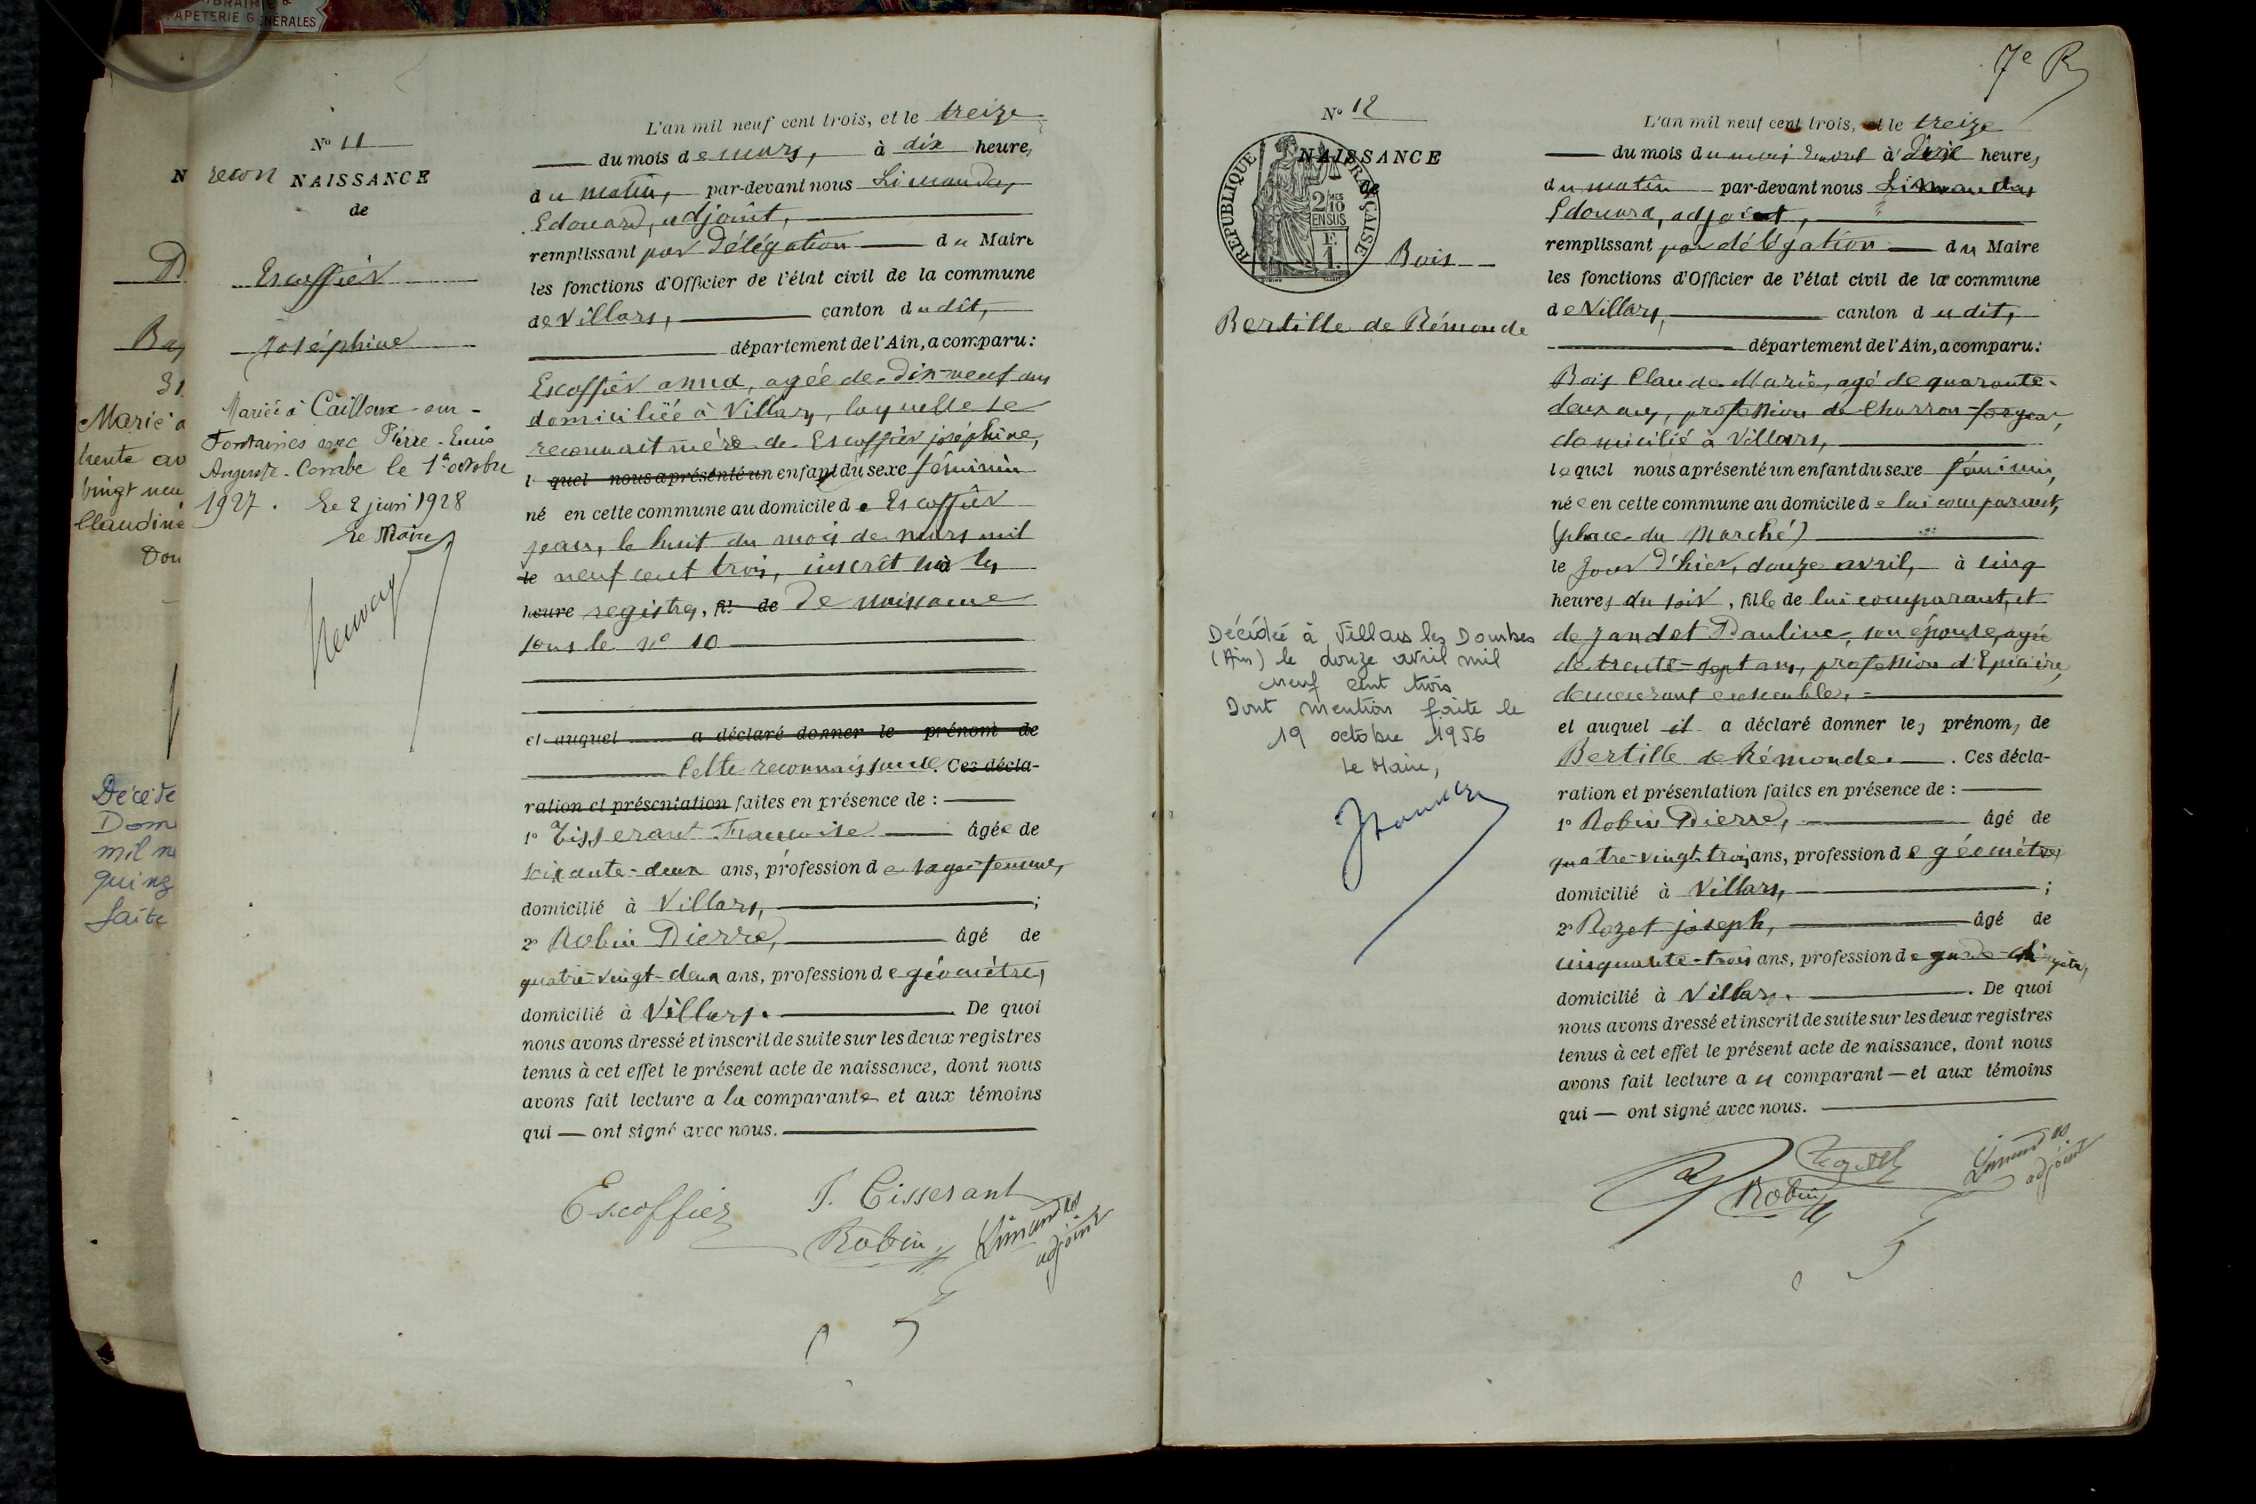 PAPETERIE GÉNÉRALES
N
D
Marié a
trente av
vingt neu
Claudine
Don
Décéde
Dom
mil n
quinz
faite
N° 11
recon NAISSANCE
de
Escoffier
Joséphine
Mariée à Cailloux-sur-
Fontaines avec Pierre-
Auguste-Combe le 1er octobre
1927. Le 2 juin 1928
Le Maire
L'an mil neuf cent trois, et le treize
du mois de mars, à dix heures
du matin, par-devant nous Limandas
Edouard, adjoint,
remplissant par délégation du Maire
les fonctions d'Officier de l'état civil de la commune
de Villars, canton dudit,
département de l'Ain, a comparu:
Escoffier anna, agée de dix-neuf ans
domiciliée à Villars, laquelle se
reconnait mère de Escoffier joséphine,
l quel nous a présenté un enfant du sexe féminin
né en cette commune au domicile de Escoffier
jean, le huit du mois de mars mil
le neuf cent trois, inscrit sur les
heure registres, fil de De naissance
sous le n° 10
et auquel a déclaré donner le prénom de
Cette reconnaissance. Ces décla-
ration et présentation faites en présence de :
1° Tisserant Françoise âgée de
soixante-deux ans, profession de sage-femme,
domicilié à Villars, ;
2° Robin Pierre, âgé de
quatre-vingt-deux ans, profession de géomètre,
domicilié à Villars. De quoi
nous avons dressé et inscrit de suite sur les deux registres
tenus à cet effet le présent acte de naissance, dont nous
avons fait lecture a la comparante et aux témoins
qui — ont signé avec nous.
Escoffier F. Tisserant
Robin Limandas
adjoint
7e R
N° 12
NAISSANCE
de
REPUBLIQUE FRANÇAISE
2/10 MES
EN SUS
F.
1.
Bois
Bertille de Rémonde
Décédée à Villars les Dombes
(Ain) le douze avril mil
neuf cent trois
Dont mention faite le
19 octobre 1956
Le Maire,
L'an mil neuf cent trois, et le treize
du mois du mois d'avril à dix heures
du matin par-devant nous Limandas
Edouard, adjoint,
remplissant par délégation du Maire
les fonctions d'Officier de l'état civil de la commune
de Villars, canton dudit,
département de l'Ain, a comparu:
Bois Claude-Marie, agé de quarante-
deux ans, profession de Charron-forgeur,
domicilié à Villars,
lequel nous a présenté un enfant du sexe féminin,
née en cette commune au domicile de lui comparant,
(place du Marché)
le jour d'hier, douze avril, à cinq
heures du soir, fille de lui comparant, et
de Jandet Pauline, son épouse, agée
de trente-sept ans, profession d'Epicière,
demeurant ensemble,
et auquel il a déclaré donner les prénoms de
Bertille de Rémonde. Ces décla-
ration et présentation faites en présence de :
1° Robin Pierre, âgé de
quatre-vingt-trois ans, profession de géomètre,
domicilié à Villars, ;
2° Rozet joseph, âgé de
cinquante-trois ans, profession de garde-champêtre,
domicilié à Villars. De quoi
nous avons dressé et inscrit de suite sur les deux registres
tenus à cet effet le présent acte de naissance, dont nous
avons fait lecture au comparant — et aux témoins
qui — ont signé avec nous.
Robin
Limandas
adjoint